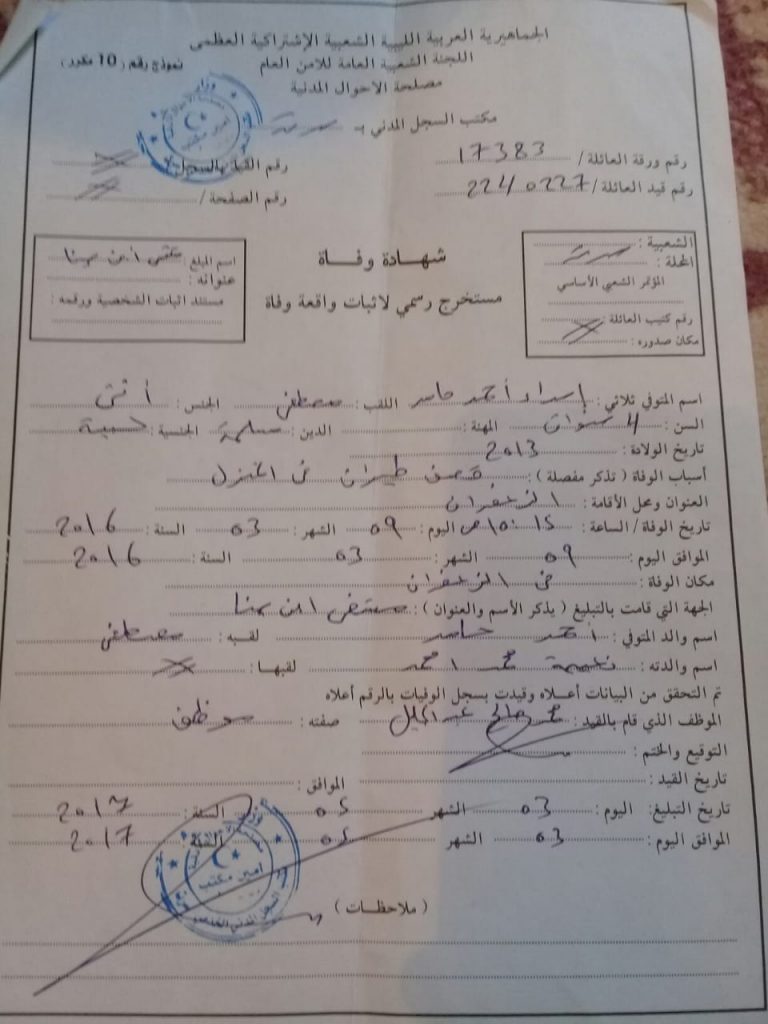 الجماهيرية العربية الليبية الشعبية الإشتراكية العظمى
اللجنة الشعبية العامة للأمن العام
نموذج رقم (10 مقيد)
مصلحة الاحوال المدنية
مكتب السجل المدني بـ سرت
رقم ورقة العائلة / 17383
رقم القيد بالسجل /
رقم قيد العائلة / 2240227
رقم الصفحة /
الشعبية :
المحلة : سرت
المؤتمر الشعبي الأساسي
رقم كتيب العائلة :
مكان صدوره :
شهادة وفاة
مستخرج رسمي لاثبات واقعة وفاة
اسم المبلغ : مستشفى ابن سينا
عنوانه :
مستند اثبات الشخصية ورقمه :
اسم المتوفي ثلاثي : إسراء أحمد حامد اللقب : مصطفى الجنس : أنثى
السن : 4 سنوات المهنة : الدين : مسلمة الجنسية : ليبية
تاريخ الولادة : 2013
أسباب الوفاة ( تذكر مفصلة ) : قصف طيران في المنزل
العنوان ومحل الأقامة : الزعفران
تاريخ الوفاة / الساعة : 10:15 ص اليوم : 09 الشهر : 03 السنة : 2016
الموافق اليوم : 09 الشهر : 03 السنة : 2016
مكان الوفاة : في الزعفران
الجهة التي قامت بالتبليغ ( يذكر الأسم والعنوان ) : مستشفى ابن سينا
اسم والد المتوفي : أحمد حامد لقبه : مصطفى
اسم والدته : نعيمة محمد احمد لقبها :
تم التحقق من البيانات أعلاه وقيدت بسجل الوفيات بالرقم أعلاه
الموظف الذي قام بالقيد : محمد صالح عبد الجليل صفته : موظف
التوقيع والختم :
تاريخ القيد : الموافق :
تاريخ التبليغ : اليوم : 03 الشهر 05 السنة : 2017
الموافق اليوم : 03 الشهر 05 السنة : 2017
أمين مكتب
( ملاحظات )